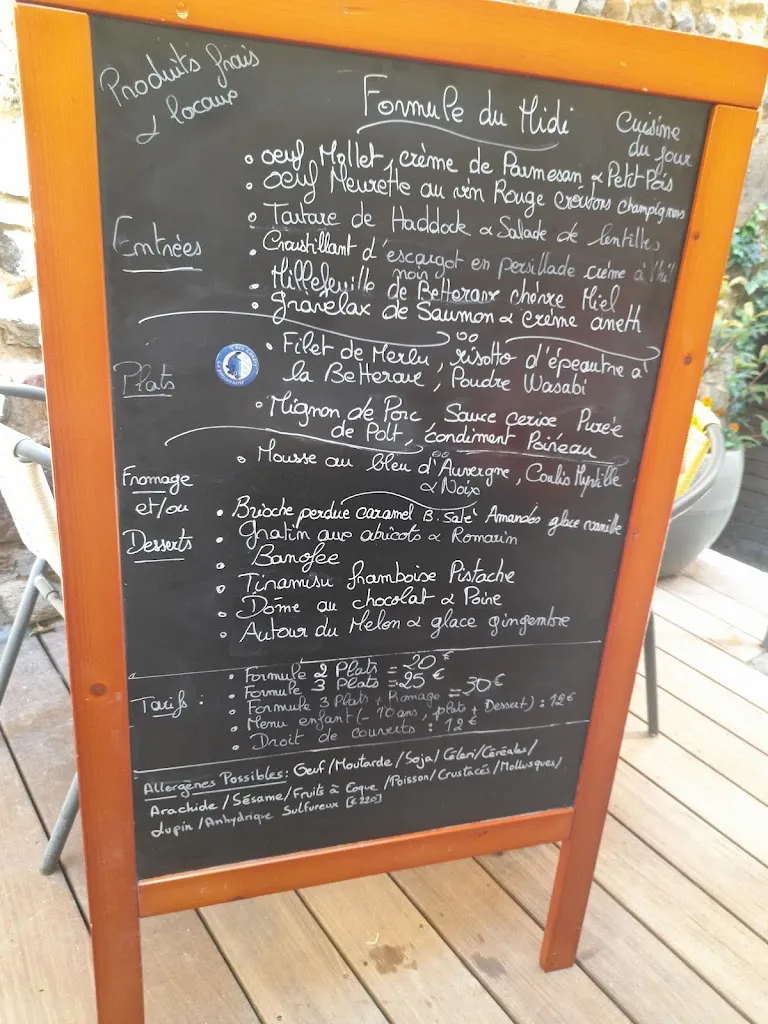 Produits frais
& locaux
Formule du Midi
Cuisine
du jour
Entrées
• oeuf Mollet, crème de Parmesan & Petit Pois
• Oeuf Meurette au vin Rouge croûtons champignons
• Tartare de Haddock & Salade de lentilles
• Croustillant d'escargot en persillade crème à l'ail
noir
• Millefeuille de Betterave chèvre Miel
• Gravelax de Saumon & crème aneth
Plats
• Filet de Merlu, risotto d'épeautre à
la Betterave, Poudre Wasabi
• Mignon de Porc Sauce cerise Purée
de Pdt, condiment Poireau
Fromage
et/ou
Desserts
• Mousse au bleu d'Auvergne, Coulis Myrtille
& Noix
• Brioche perdue caramel B. Salé Amandes glace vanille
• Gratin aux abricots & Romarin
• Banofee
• Tiramisu framboise Pistache
• Dôme au chocolat & Poire
• Autour du Melon & glace gingembre
Tarifs :
• Formule 2 Plats = 20€
• Formule 3 Plats = 25€
• Formule 3 Plats + fromage = 30€
• Menu enfant (- 10 ans, plat + Dessert) : 12€
• Droit de couverts : 12€
Allergènes Possibles: Oeuf/Moutarde/Soja/Céleri/Céréales/
Arachide/Sésame/Fruits à Coque/Poisson/Crustacés/Mollusques/
Lupin/Anhydrique Sulfureux [E220]